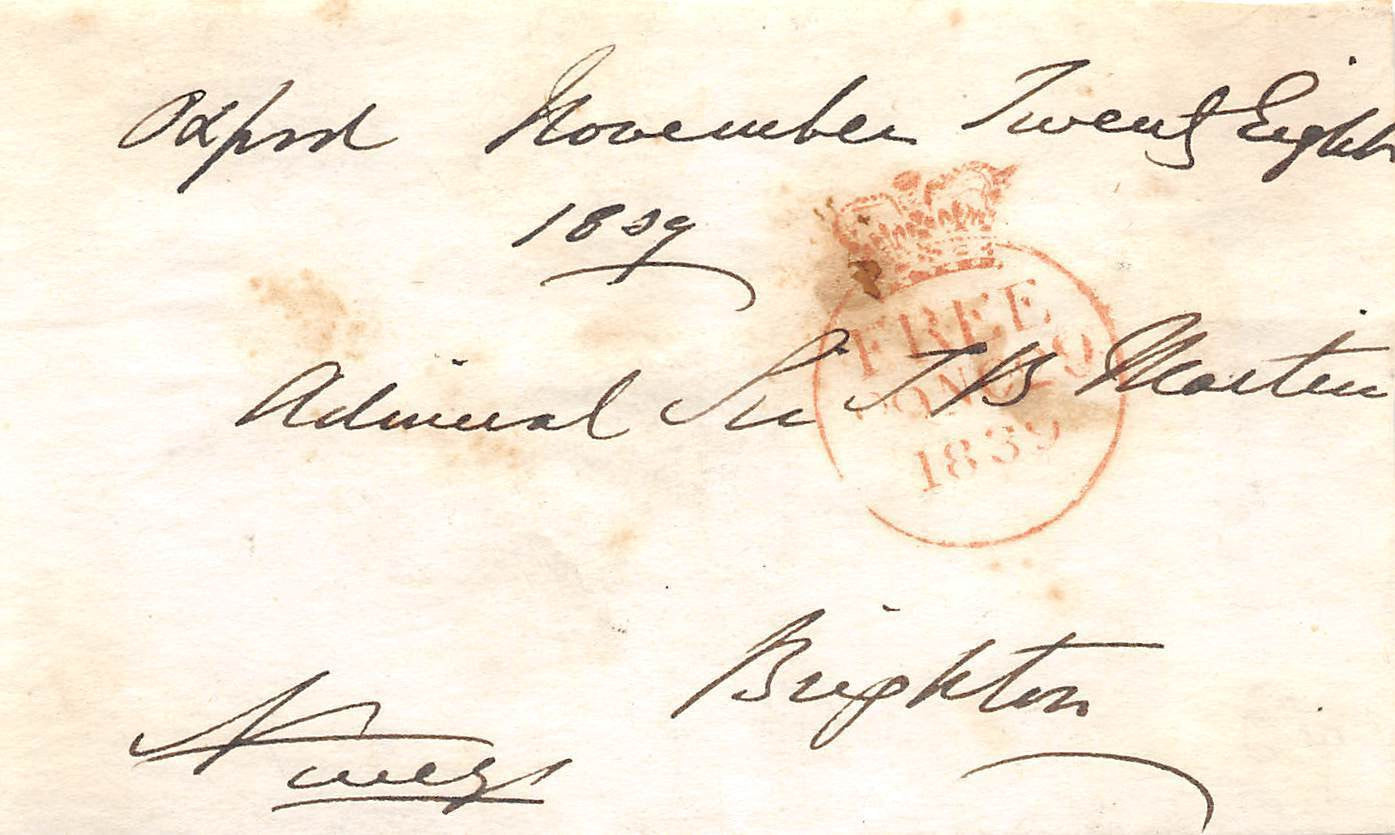 Oxford November Twenty Eight
1839
FREE
29
1839
Admiral Sir T B Martin
Brighton